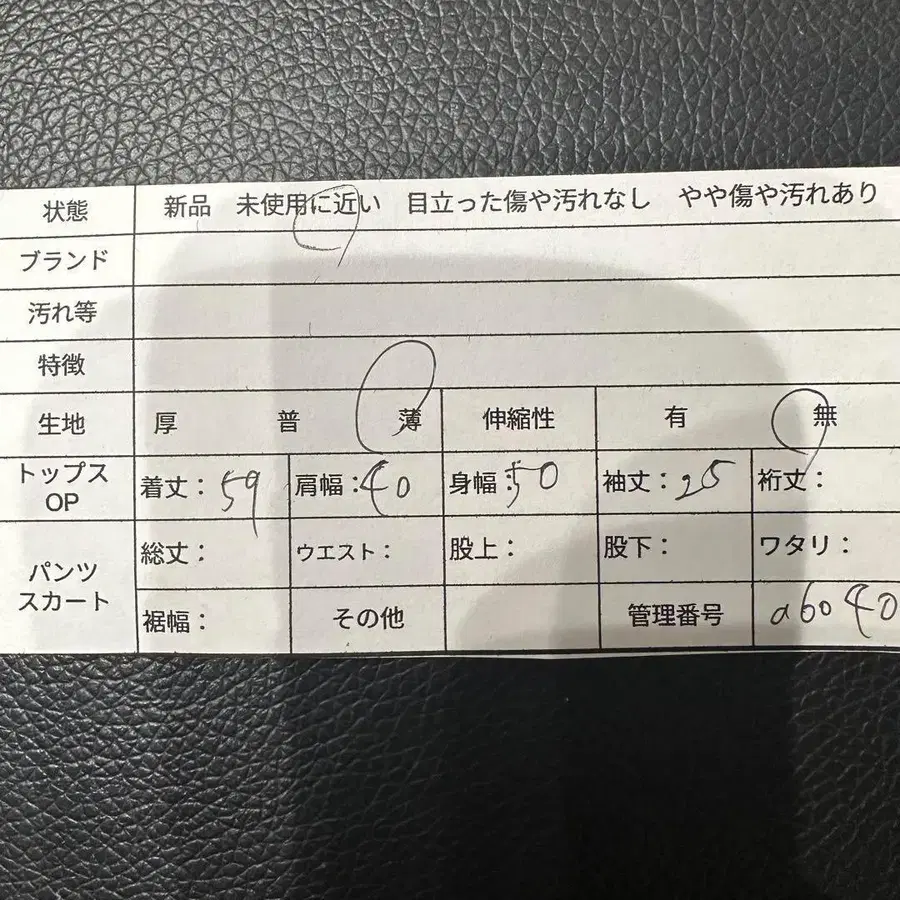 状態 新品 未使用に近い 目立った傷や汚れなし やや傷や汚れあり
ブランド
汚れ等
特徴
生地 厚 普 薄 伸縮性 有 無
トップス OP 着丈：59 肩幅：40 身幅：50 袖丈：25 裄丈：
パンツ スカート 総丈： ウエスト： 股上： 股下： ワタリ：
裾幅： その他 管理番号 a6040